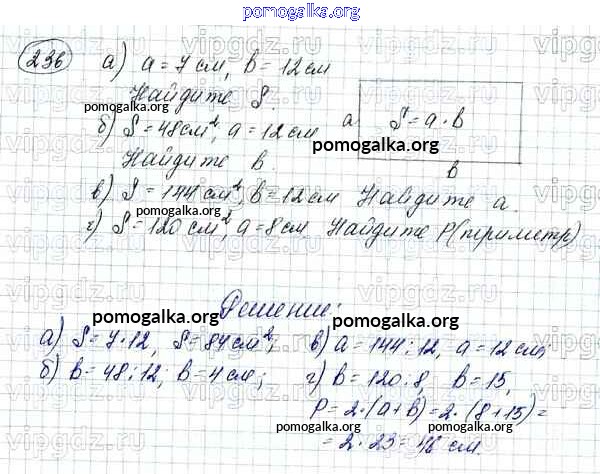 pomogalka.org
236 а) a = 7 см, b = 12 см
Найдите S.
pomogalka.org
б) S = 48 см², a = 12 см
Найдите b.
a S = a · b
pomogalka.org
b
в) S = 144 см², b = 12 см Найдите a.
pomogalka.org
г) S = 120 см², a = 8 см Найдите P(периметр)
Решение:
pomogalka.org pomogalka.org
а) S = 7 · 12, S = 84 см²; в) a = 144 : 12, a = 12 см;
б) b = 48 : 12, b = 4 см; г) b = 120 : 8, b = 15,
pomogalka.org
P = 2 · (a + b) = 2 · (8 + 15) =
pomogalka.org pomogalka.org
= 2 · 23 = 46 см.
vipgdz.ru